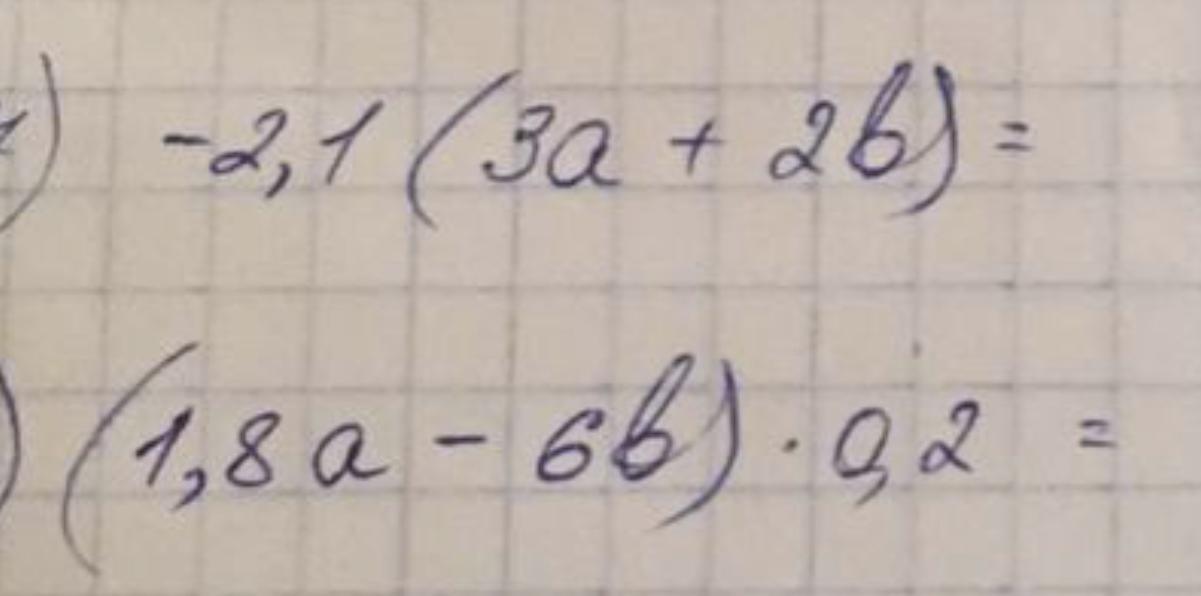 1) -2,1 (3a + 2b) =
) (1,8a - 6b) · 0,2 =